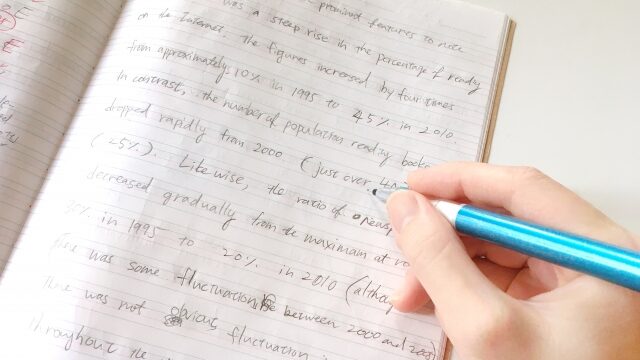 prominent features to note
was a steep rise in the percentage of ready
on the Internet. The figures increased by four times
from approximately 10% in 1995 to 45% in 2010.
In contrast, the number of population reading books
dropped rapidly from 2000 (just over
(25%). Likewise, the ratio of
decreased gradually from the maximam at
in 1995 to 20% in 2010 (although
was some fluctuation between 2000 and 2005)
was not obvious fluctuation
throughout the